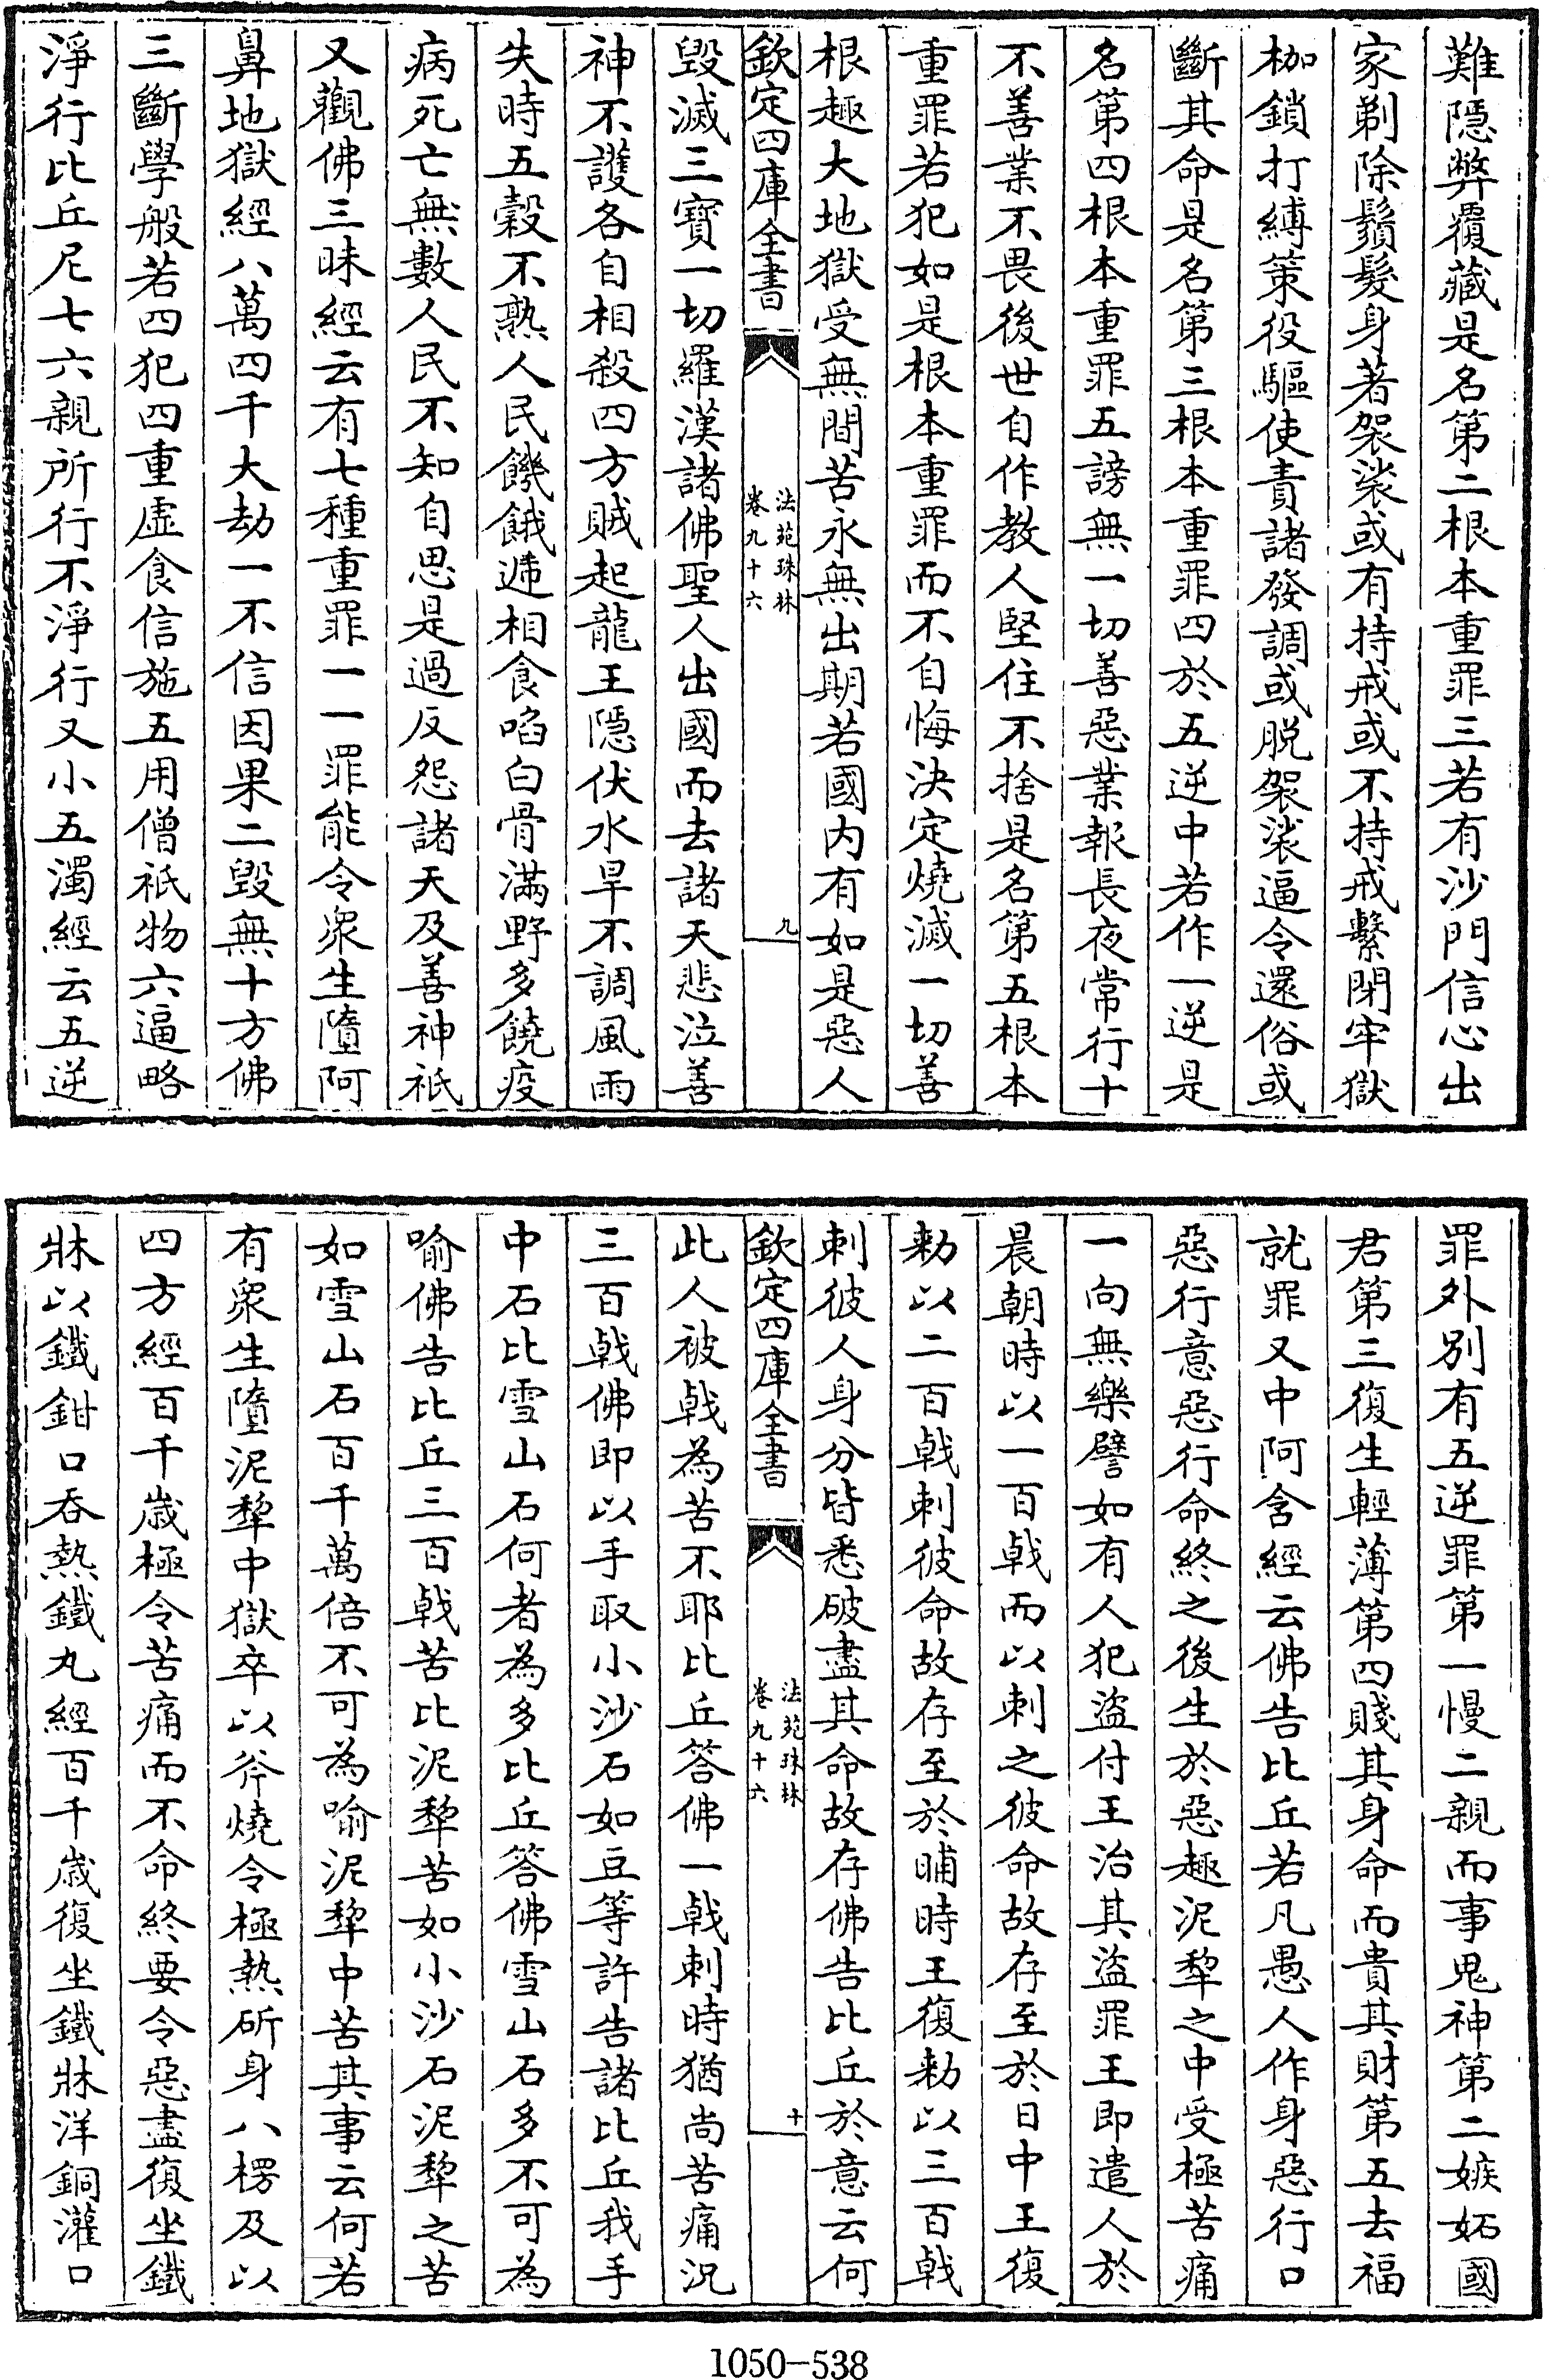 難隱弊覆藏是名第二根本重罪三若有沙門信心出
家剃除鬚髮身著袈裟或有持戒或不持戒繫閉牢獄
枷鎖打縛策役驅使責諸發調或脱袈裟逼令還俗或
斷其命是名第三根本重罪四於五逆中若作一逆是
名第四根本重罪五謗無一切善惡業報長夜常行十
不善業不畏後世自作教人堅住不捨是名第五根本
重罪若犯如是根本重罪而不自悔決定燒滅一切善
根趣大地獄受無間苦永無出期若國内有如是惡人
欽定四庫全書
法苑珠林
卷九十六
九
毀滅三寳一切羅漢諸佛聖人出國而去諸天悲泣善
神不護各自相殺四方賊起龍王隱伏水旱不調風雨
失時五穀不熟人民饑餓遞相食啗白骨滿野多饒疫
病死亡無數人民不知自思是過反怨諸天及善神祇
又觀佛三昧經云有七種重罪一一罪能令衆生墮阿
鼻地獄經八萬四千大劫一不信因果二毀無十方佛
三斷學般若四犯四重虚食信施五用僧祇物六逼略
淨行比丘尼七六親所行不淨行又小五濁經云五逆
罪外別有五逆罪第一慢二親而事鬼神第二嫉妬國
君第三復生輕薄第四賤其身命而貴其財第五去福
就罪又中阿含經云佛告比丘若凡愚人作身惡行口
惡行意惡行命終之後生於惡趣泥犂之中受極苦痛
一向無樂譬如有人犯盜付王治其盜罪王即遣人於
晨朝時以一百戟而以刺之彼命故存至於日中王復
勑以二百戟刺彼命故存至於晡時王復勑以三百戟
刺彼人身分皆悉破盡其命故存佛告比丘於意云何
欽定四庫全書
法苑珠林
卷九十六
十
此人被戟為苦不耶比丘答佛一戟刺時猶尚苦痛況
三百戟佛即以手取小沙石如豆等許告諸比丘我手
中石比雪山石何者為多比丘答佛雪山石多不可為
喻佛告比丘三百戟苦比泥犂苦如小沙石泥犂之苦
如雪山石百千萬倍不可為喻泥犂中苦其事云何若
有衆生墮泥犂中獄卒以斧燒令極熱斫身八楞及以
四方經百千歳極令苦痛而不命終要令惡盡復坐鐵
牀以鐵鉗口吞熱鐵丸經百千歳復坐鐵牀洋銅灌口
1050-538